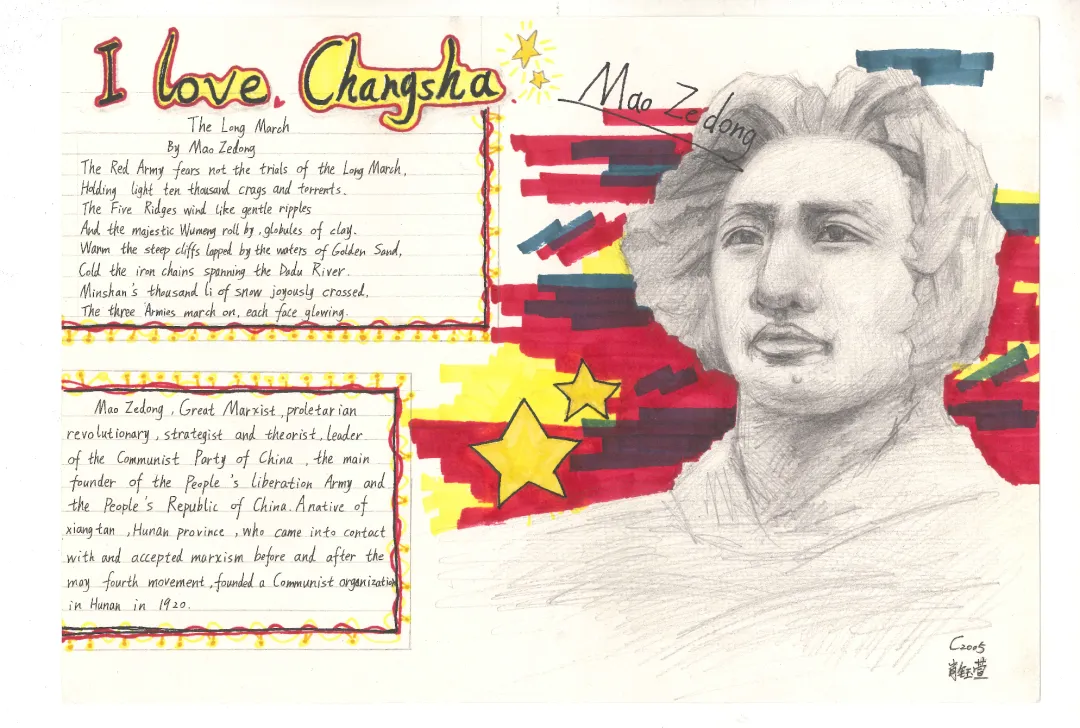 I love Changsha.
Mao Zedong
The Long March
By Mao Zedong
The Red Army fears not the trials of the Long March,
Holding light ten thousand crags and torrents.
The Five Ridges wind like gentle ripples
And the majestic Wumeng roll by, globules of clay.
Warm the steep cliffs lapped by the waters of Golden Sand,
Cold the iron chains spanning the Dadu River.
Minshan's thousand li of snow joyously crossed,
The three Armies march on, each face glowing.
Mao Zedong, Great Marxist, proletarian
revolutionary, strategist and theorist, leader
of the Communist Party of China, the main
founder of the People's liberation Army and
the People's Republic of China. A native of
xiangtan, Hunan province, who came into contact
with and accepted marxism before and after the
may fourth movement, founded a Communist organization
in Hunan in 1920.
C2005
肖钰萱